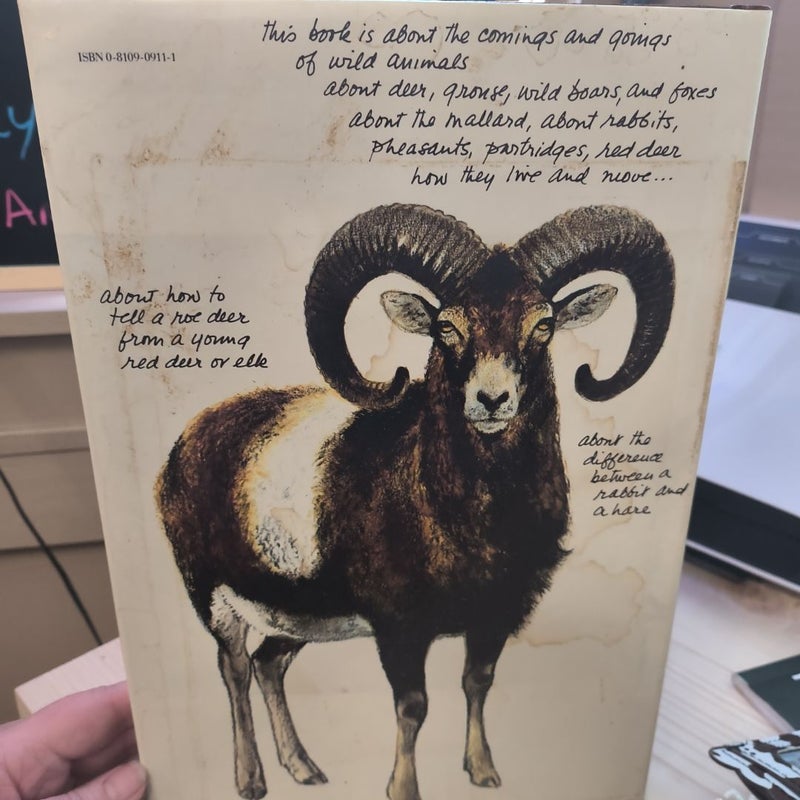 ISBN 0-8109-0911-1
this book is about the comings and goings
of wild animals
about deer, grouse, wild boars, and foxes
about the mallard, about rabbits,
pheasants, partridges, red deer
how they live and move...
about how to
tell a roe deer
from a young
red deer or elk
about the
difference
between a
rabbit and
a hare